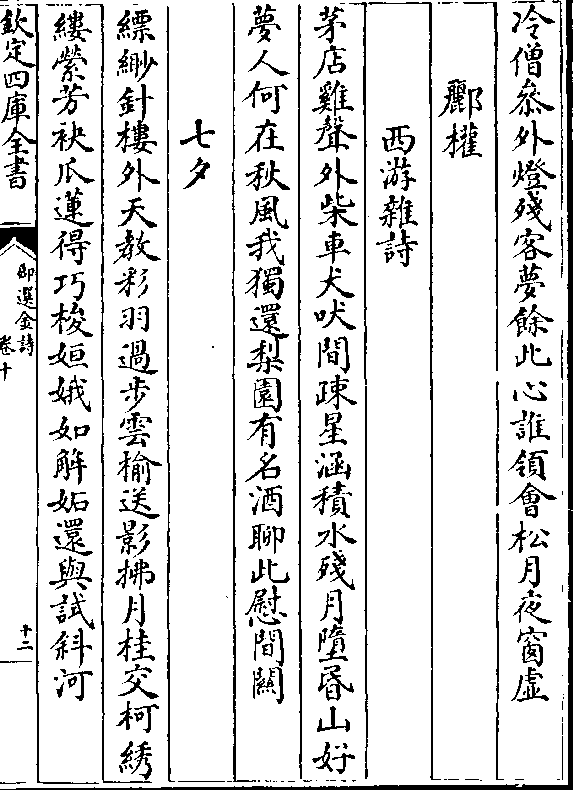 冷僧參外燈殘客夢餘此心誰領會松月夜窗虛
酈權
西游雜詩
茅店雞聲外柴車犬吠間疎星涵積水殘月墮昏山好
夢人何在秋風我獨還梨園有名酒聊此慰間關
七夕
縹緲針樓外天教彩羽過步雲榆送影拂月桂交柯綉
縷縈芳袂瓜蓮得巧梭姮娥如解妬還與試斜河
欽定四庫全書
御選金詩
卷十
十二